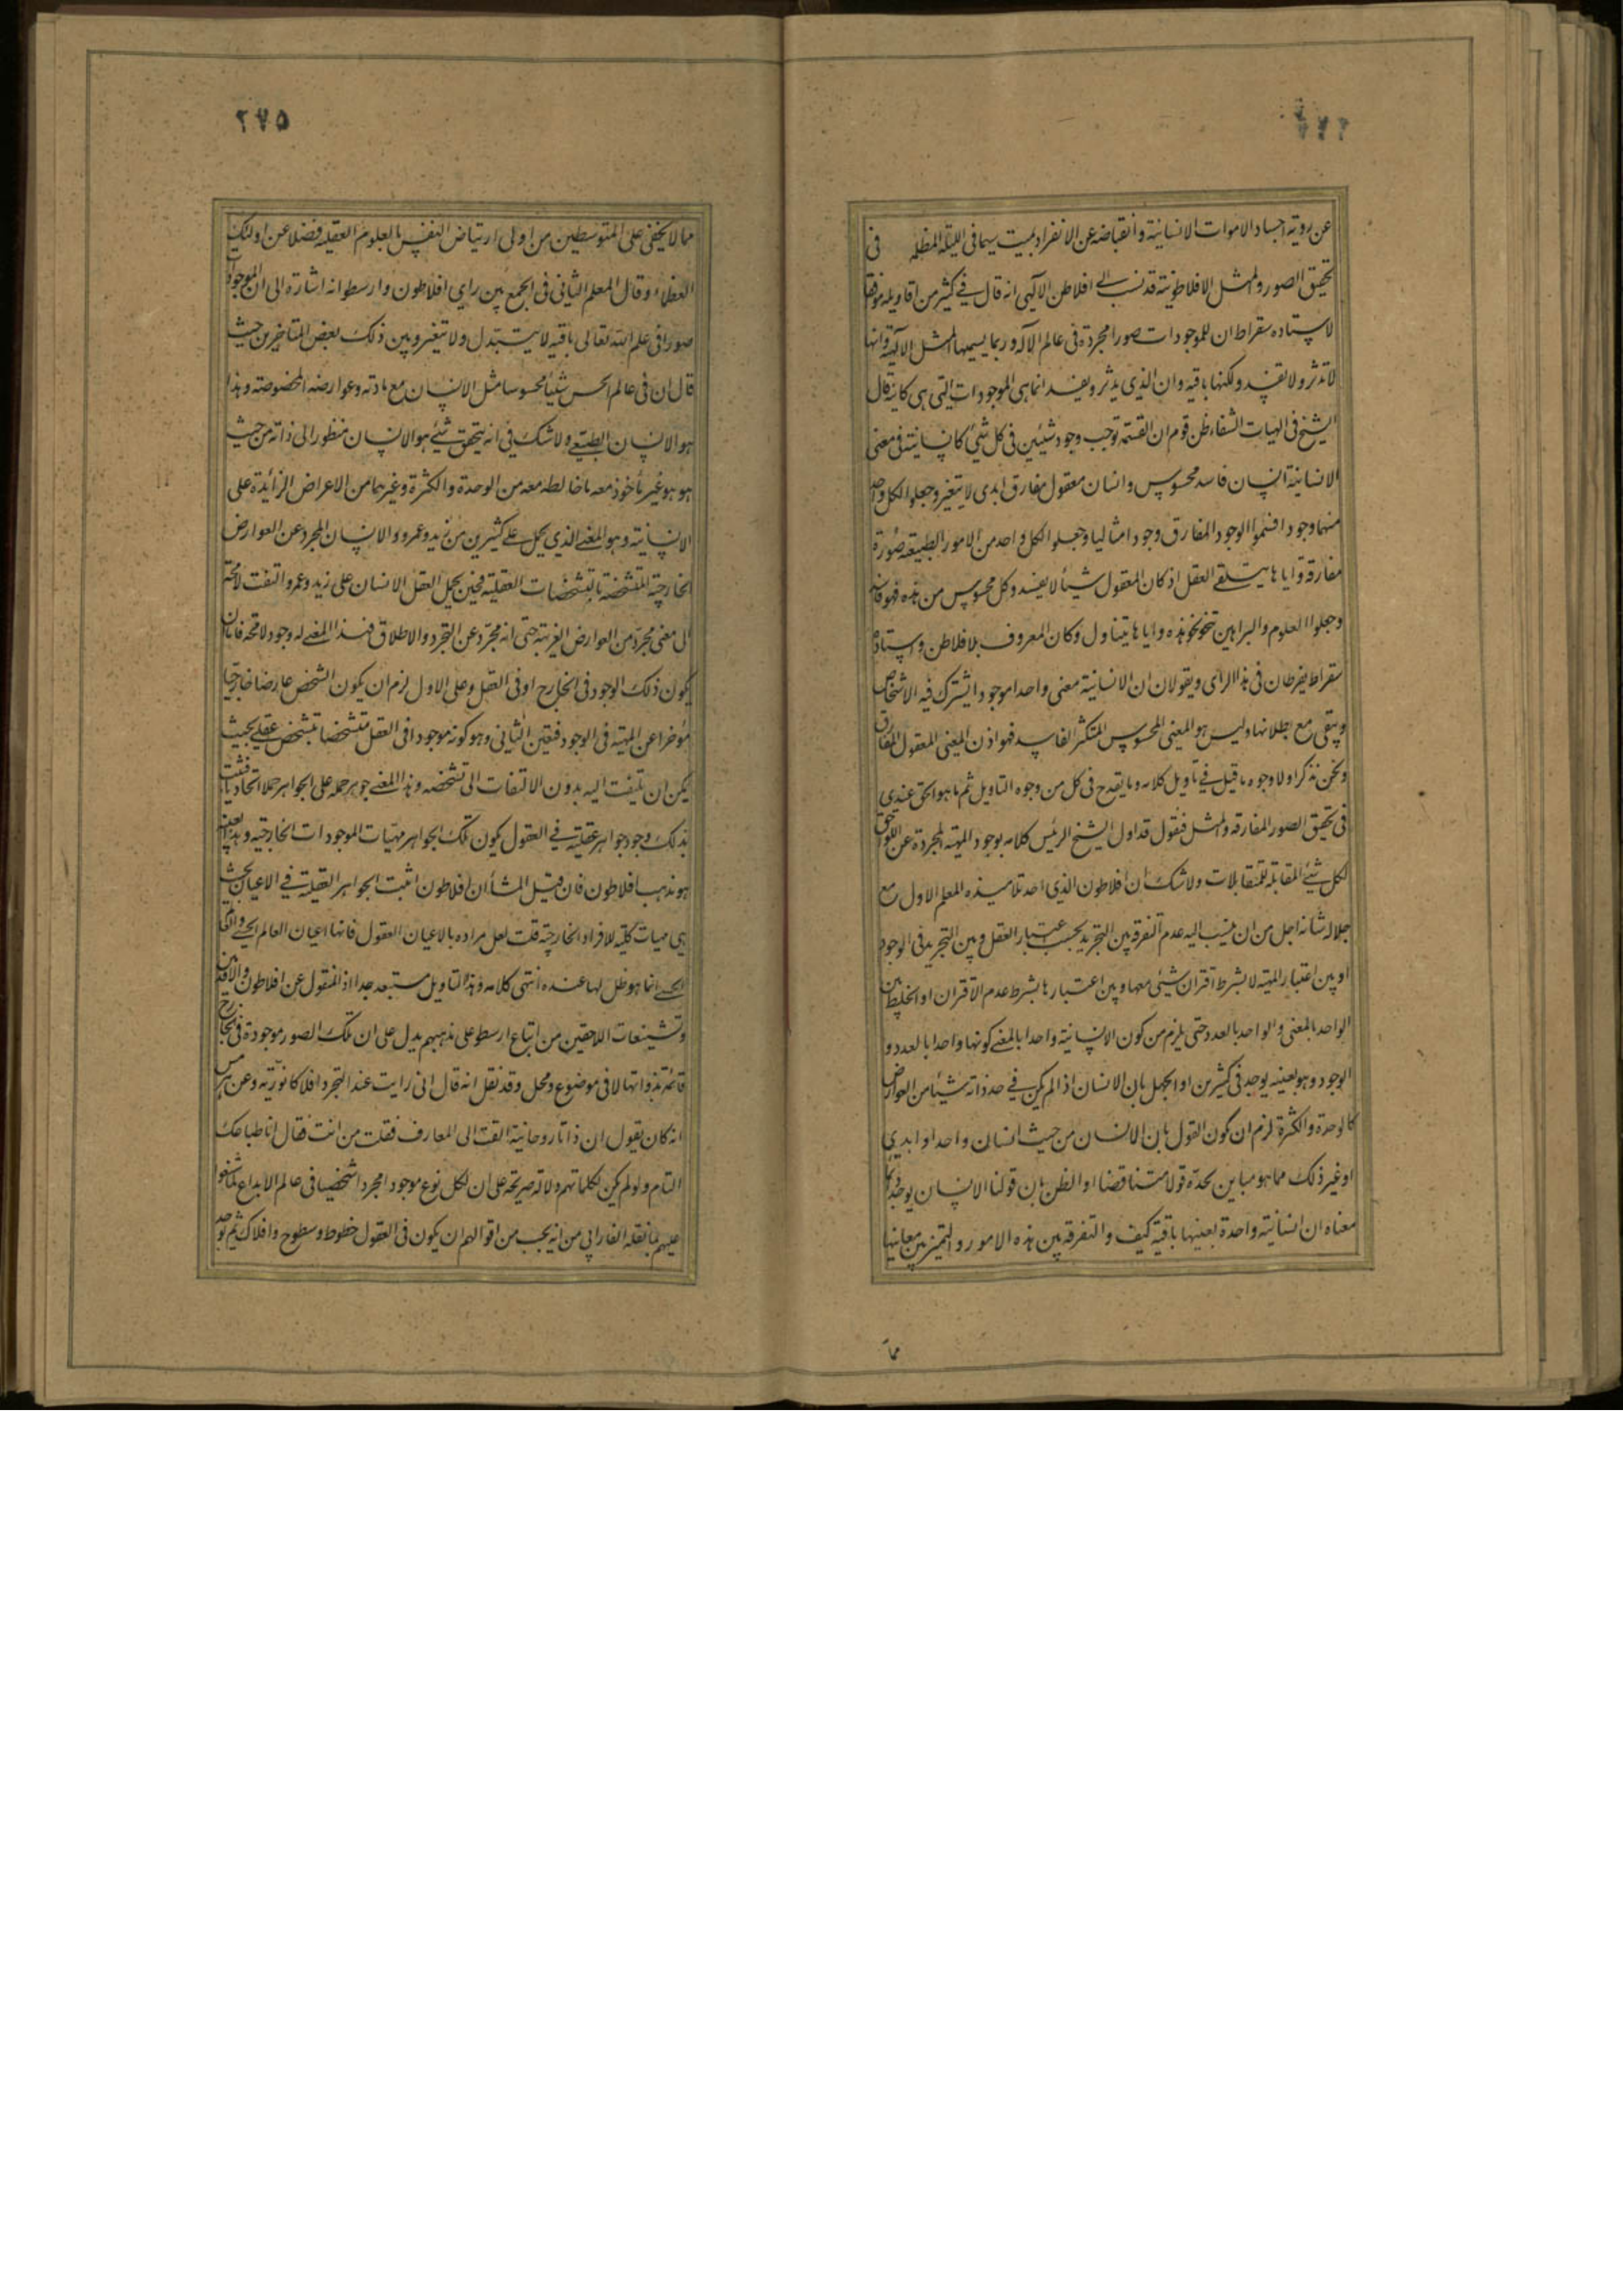 عن رویة اجساد الاموات الانسانیة وانقباضه عن الانفراد بمیت سیما فی اللیلة المظلمة فی
تحقیق الصور والمثل الافلاطونیة قد نسب الی افلاطن الالهی انه قال فی کثیر من اقاویله موافقا
لاستاده سقراط ان للموجودات صورا مجردة فی عالم الاله وربما یسمیها المثل الالهیة وانها
لاتدثر ولاتفسد ولکنها باقیه وان الذی یدثر ویفسد انما هی الموجودات التی هی کاینة قال
الشیخ فی الهیات الشفاء ظن قوم ان القسمة توجب وجود شیئین فی کل شیئ کانسانیة فی معنی
الانسانیة انسان فاسد محسوس وانسان معقول مفارق ابدی لایتغیر وجعلوا لکل واحد
منهما وجودا فسموا الوجود المفارق وجودا مثالیا وجعلوا لکل واحد من الامور الطبیعة صورة
مفارقة وایاها یتلقی العقل اذ کان المعقول شیئا لایفسد وکل محسوس من هذه فهو فاسد
وجعلوا العلوم والبراهین تنحو نحو هذه وایاها یتناول وکان المعروف بافلاطن واستاده
سقراط یفرطان فی هذا الرای ویقولان ان الانسانیة معنی واحدا موجودا یشترک فیه الاشخاص
ویبقی مع بطلانها ولیس هو المعنی المحسوس المتکثر الفاسد فهو اذن المعنی المعقول المفارق
ونحن نذکر اولا وجوه ما قیل فی تاویل کلامه وما یقدح فی کل من وجوه التاویل ثم ما هو الحق عندی
فی تحقیق الصور المفارقه والمثل فنقول قد اول الشیخ الرئیس کلامه بوجود المهیة المجردة عن اللواحق
لکل شیئ القابلة للمتقابلات ولاشک ان افلاطون الذی احد تلامیذه المعلم الاول مع
جلالة شانه اجل من ان ینسب الیه عدم التفرقه بین التجرید بحسب اعتبار العقل وبین التجرید فی الوجود
او بین اعتبار المهیة لابشرط اقتران شیئی معها وبین اعتبارها بشرط عدم الاقتران او الخلط بین
الواحد بالمعنی والواحد بالعدد حتی یلزم من کون الانسانیة واحدا بالمعنی کونها واحدا بالعدد و
الوجود وهو بعینه یوجد فی کثیرین او الجهل بان الانسان اذا لم یکن فی حد ذاته شیئا من العوارض
کالوحدة والکثرة لزم ان یکون القول بان الانسان من حیث انسان واحد او ابدی
او غیر ذلک مما هو مباین لحده قولا متناقضا او الظن بان قولنا الانسان یوجد دائما
معناه ان انسانیة واحدة بعینها باقیة کیف والتفرقه بین هذه الامور والتمیز بین معانیها
مما
۲۷۵
مما لایخفی علی المتوسطین من اولی ارتیاض النفس بالعلوم العقلیه فضلا عن اولئک
العظماء وقال المعلم الثانی فی الجمع بین رایی افلاطون وارسطو انه اشارة الی ان للموجودات
صورا فی علم الله تعالی باقیه لایتبدل ولایتغیر وبین ذلک بعض المتاخرین حیث
قال ان فی عالم الحس شیئا محسوسا مثل الانسان مع مادته وعوارضه المخصوصة وهذا
هو الانسان الطبیعی ولاشک فی انه یتحقق شیئ هو الانسان منظورا الی ذاته من حیث
هو هو غیر ماخوذ معه ما خالطه معه من الوحدة والکثرة وغیرهما من الاعراض الزائدة علی
الانسانیة وهو المعنی الذی یحمل علی کثیرین من زید وعمرو والانسان المجرد عن العوارض
الخارجیة المتشخصة بالتشخصات العقلیة فحین یحمل العقل الانسان علی زید وعمرو التفت لامحة
الی معنی مجرد من العوارض الغریبة حتی انه مجرد عن التجرد والاطلاق فهذا المعنی له وجود لامحه فاما ان
یکون ذلک الوجود فی الخارج او فی العقل وعلی الاول لزم ان یکون الشخص عارضا خارجیا
مؤخرا عن المهیة فی الوجود فتعین الثانی وهو کونه موجودا فی العقل متشخصا بتشخص عقلی بحیث
یمکن ان یلتفت الیه بدون الالتفات الی تشخصه وهذا المعنی جوهر حمله علی الجواهر حملا اتحادیا فثبت
بذلک وجود جواهر عقلیة فی العقول یکون تلک الجواهر مهیات الموجودات الخارجیة وهذا بعینه
هو مذهب افلاطون فان قیل المشأ ان افلاطون اثبت الجواهر العقلیة فی الاعیان بحیث
هی مهیات کلیة للافراد الخارجیة قلت لعل مراده بالاعیان العقول فانها اعیان العالم الحسی والعالم
الحسی انما هو ظل لها عنده انتهی کلامه وهذا التاویل مستبعد جدا اذ المنقول عن افلاطون والاقدمین
وتشنیعات اللاحقین من اتباع ارسطو علی مذهبهم یدل علی ان تلک الصور موجودة فی الخارج
قائمة بذواتها لا فی موضوع ومحل وقد نقل انه قال انی رایت عند التجرد افلاکا نوریة وعن هرمس
انه کان یقول ان ذاتا روحانیة القت الی المعارف فقلت من انت فقال انا طباعک
التام ولو لم یکن لکلماتهم دلالة صریحة علی ان لکل نوع موجودا مجردا شخصیا فی عالم الابداع لما شنعوا
علیهم بما نقله الفارابی من انه یجب من اقوالهم ان یکون فی العقول خطوط وسطوح وافلاک ثم یوجد